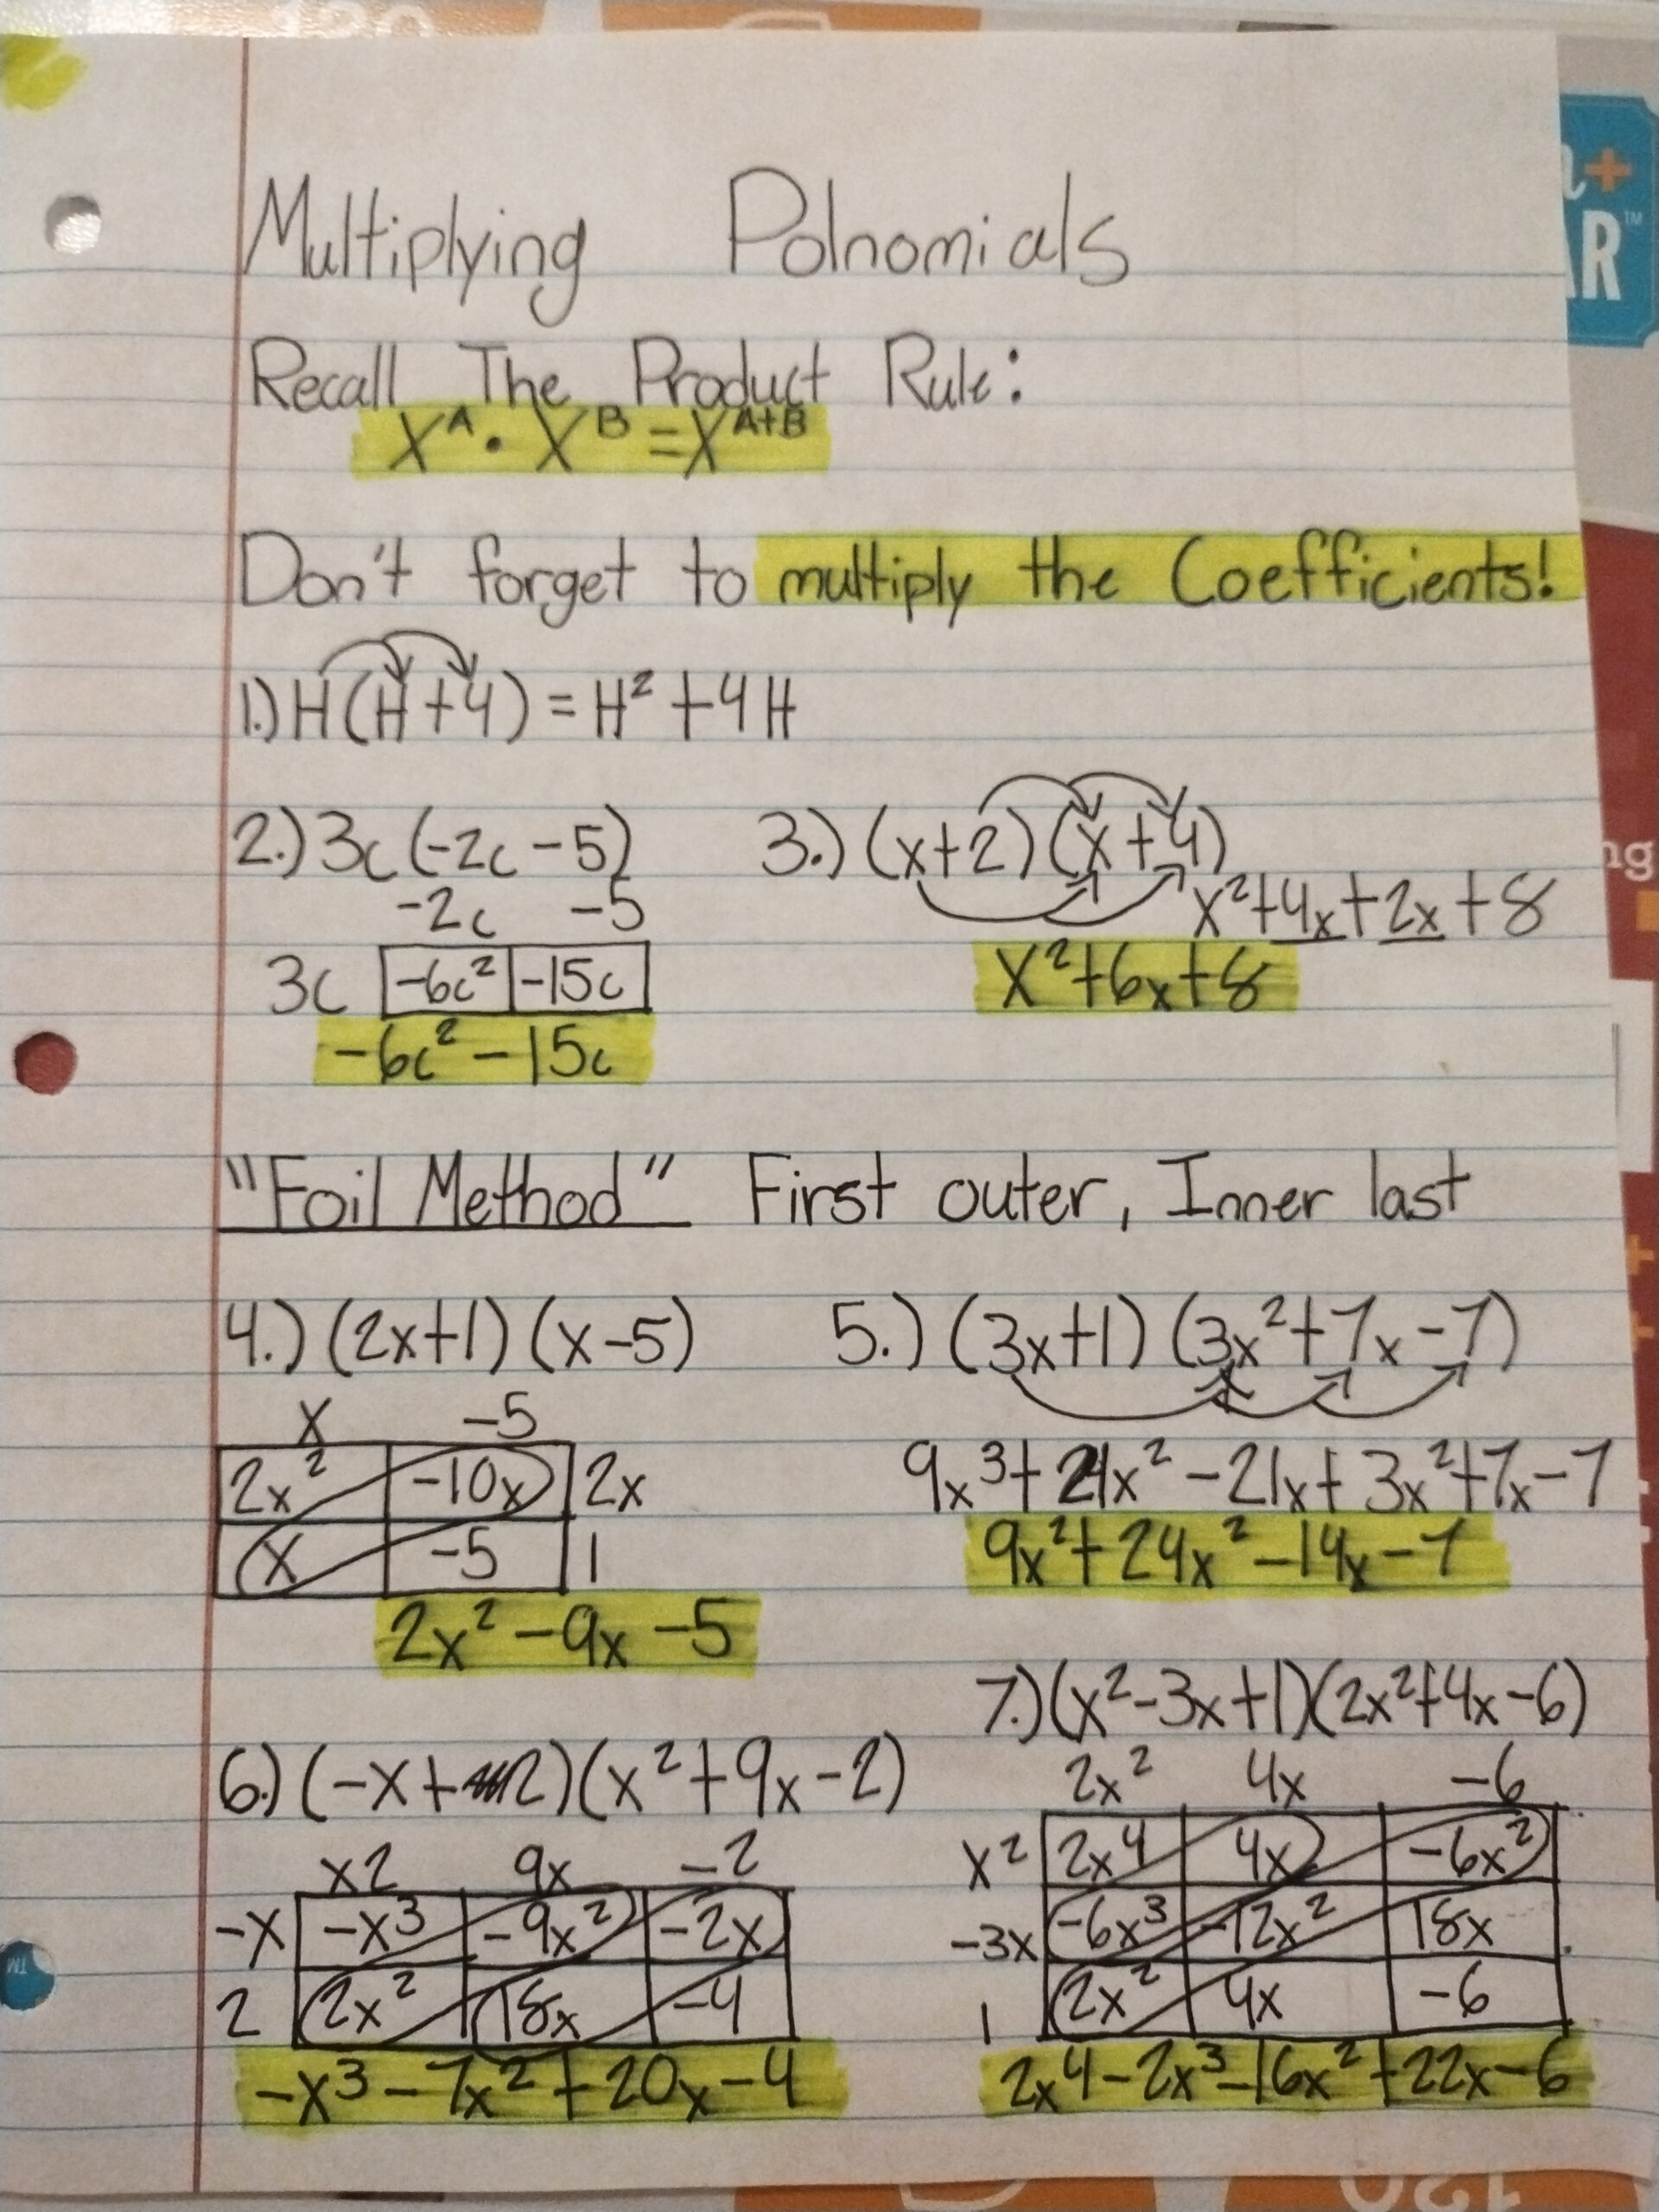 Multiplying Polnomials
Recall The Product Rule:
X^A • X^B = X^(A+B)
Don't forget to multiply the Coefficients!
1.) H(H+4) = H² + 4H
2.) 3c(-2c-5)
-2c -5
3c -6c² -15c
-6c² - 15c
3.) (x+2)(x+4)
x²+4x+2x+8
X²+6x+8
"Foil Method" First outer, Inner last
4.) (2x+1)(x-5)
X -5
2x² -10x 2x
x -5 1
2x² - 9x - 5
5.) (3x+1)(3x²+7x-7)
9x³+21x²-21x+3x²+7x-7
9x²+24x²-14x-7
6.) (-x+2)(x²+9x-2)
x2 9x -2
-x -x³ -9x² -2x
2 2x² 18x -4
-x³-7x²+20x-4
7.) (x²-3x+1)(2x²+4x-6)
2x² 4x -6
x² 2x⁴ 4x -6x²
-3x -6x³ -12x² 18x
1 2x² 4x -6
2x⁴-2x³-16x²+22x-6
AR™
ng
TM